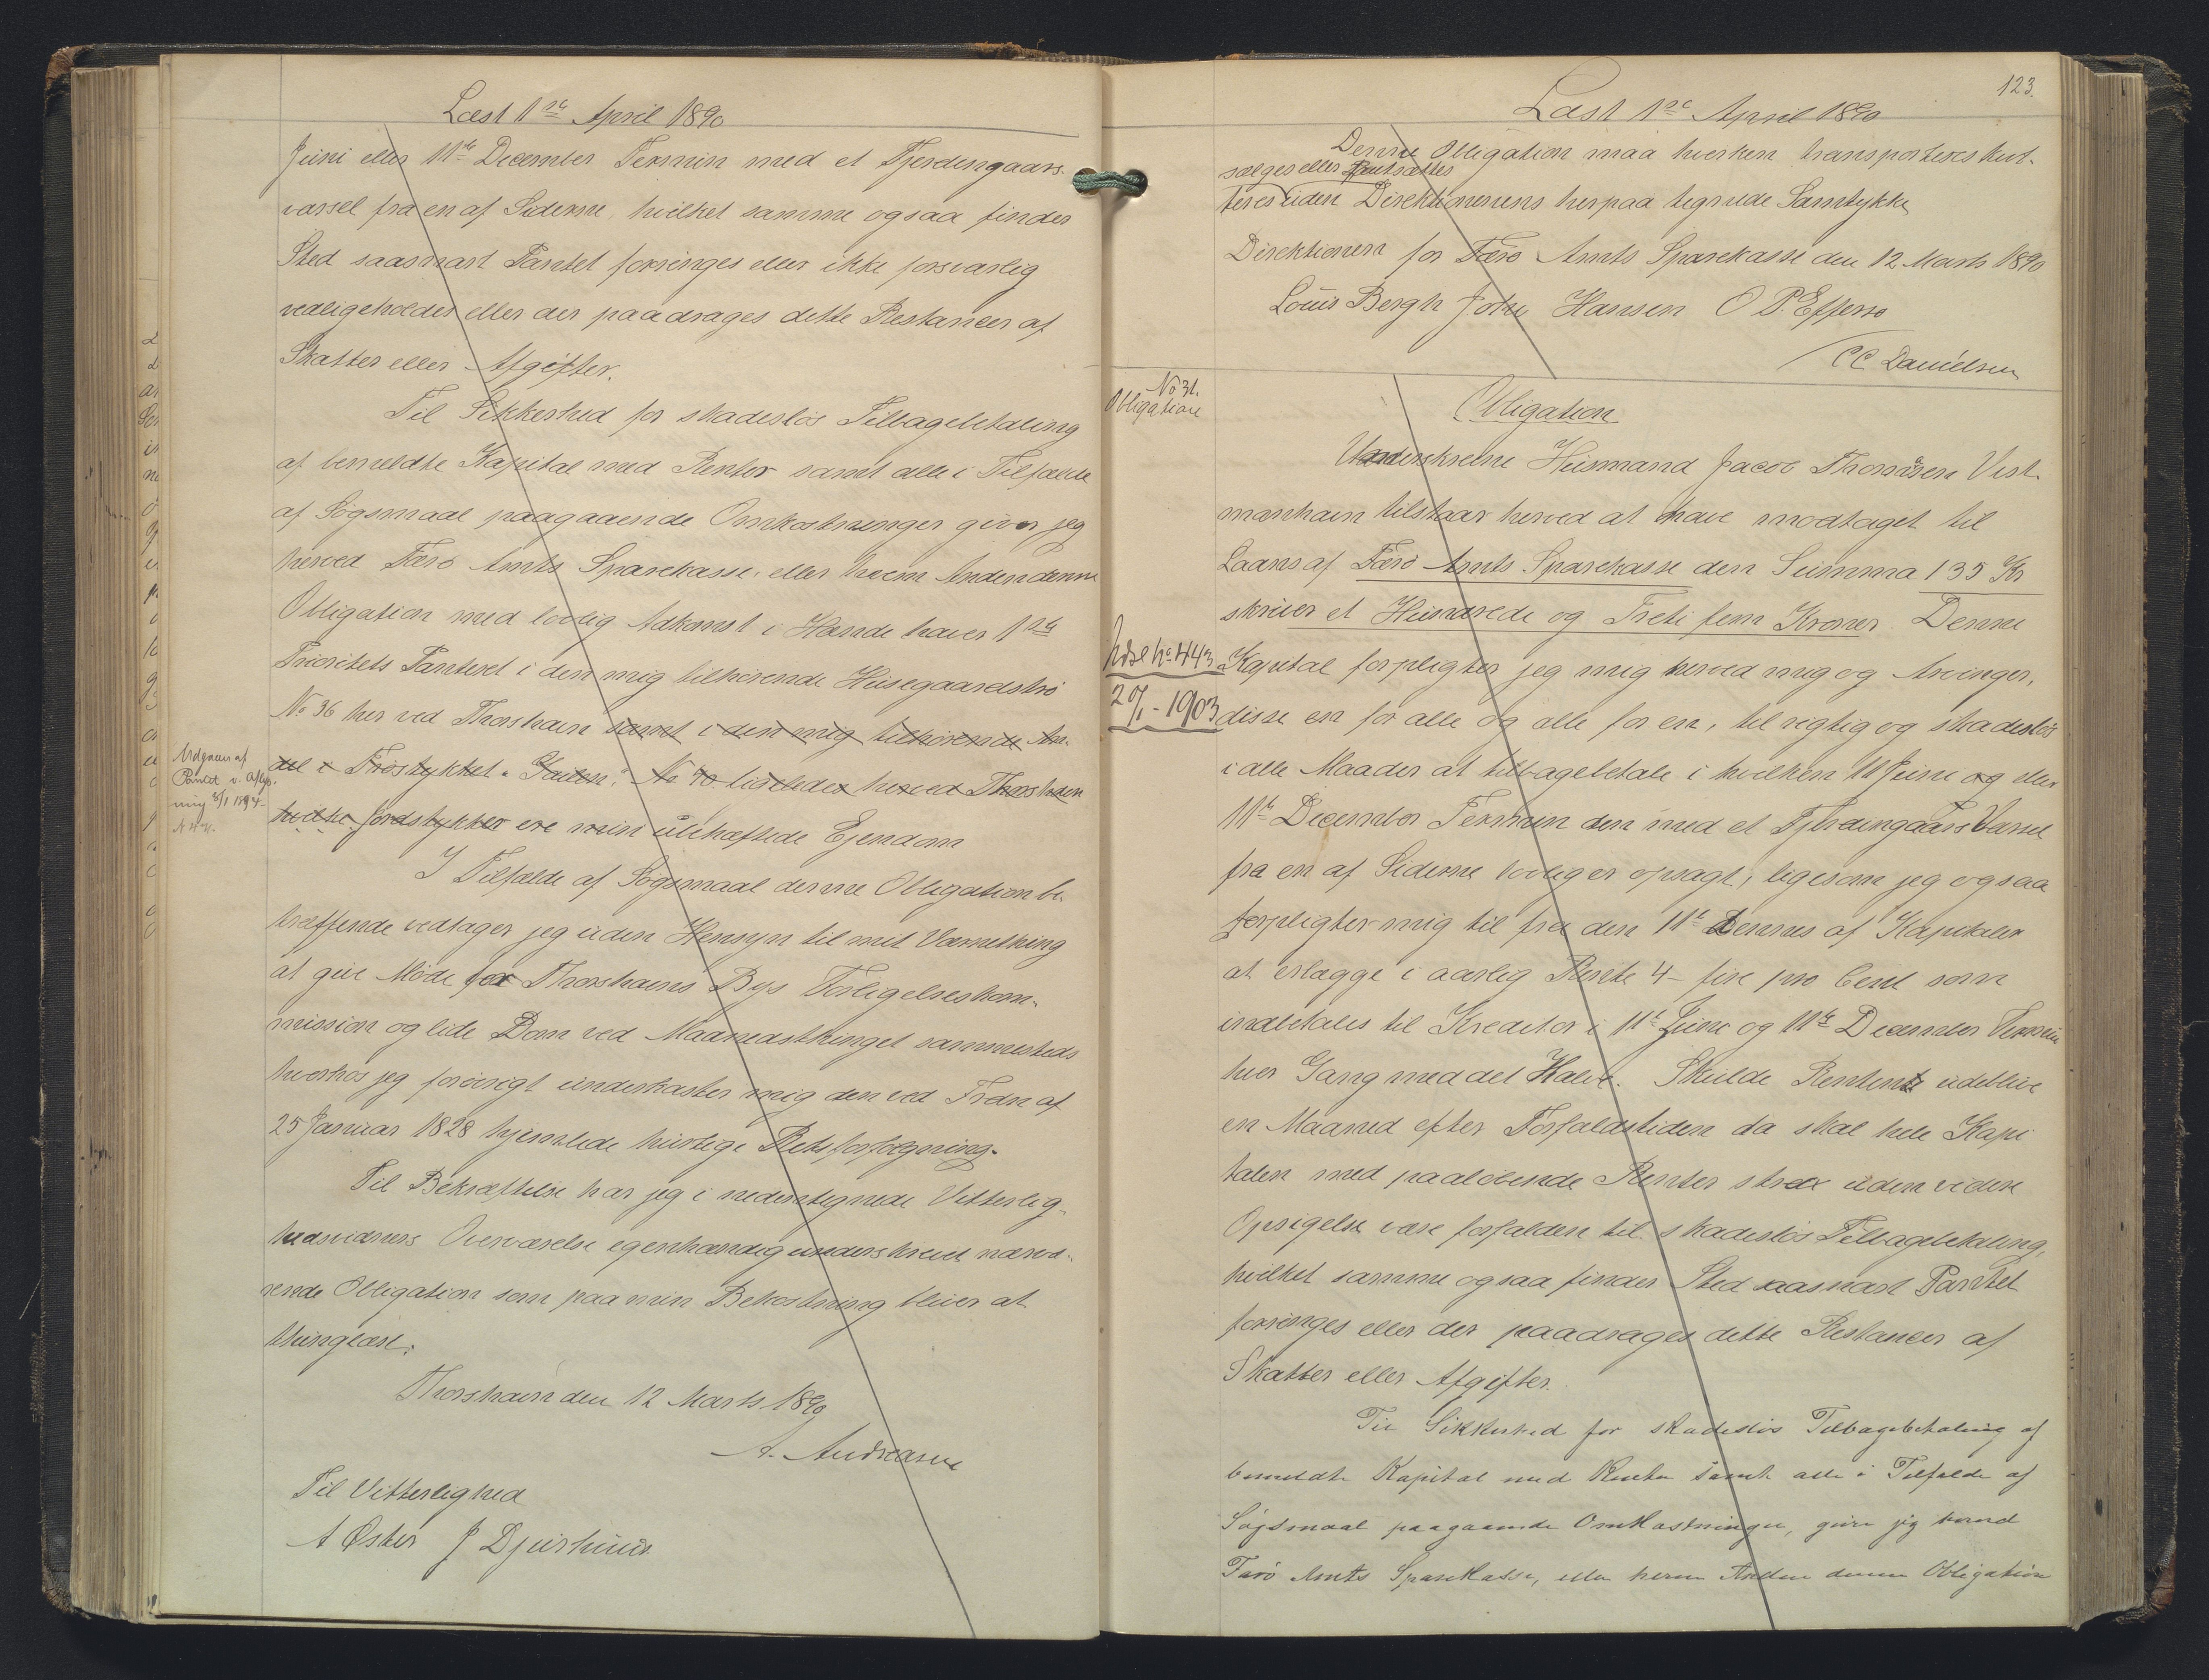 Læst 1ste April 1890
Juni eller 11te December Termin med et Fjerdingaars
varsel fra en af Siderne, hvilket samme ogsaa finder
Sted saasnart Pantet forringes eller ikke forsvarlig
vedligeholdes eller der paadrages dette Restancer af
Skatter eller Afgifter.
Til Sikkerhed for skadesløs Tilbagebetaling
af bemeldte Kapital med Renter samt alle i Tilfælde
af Søgsmaal paagaaende Omkostninger giver jeg
herved Færø Amts Sparekasse, eller hvem Anden denne
Obligation med lovlig Adkomst i Hænde haver 1ste
Prioritets Panteret i den mig tilhørende Husegaardstrø
No 36 her ved Thorshavn samt i den mig tilhørende An-
del i Trøstykket No 40 ligeledes herved Thorshavn
hvilke Jordstykker ere min ubehæftede Ejendom
Udgaaet af
Pantet v. Aflys-
ning 3/1 1894
I Tilfælde af Søgsmaal denne Obligation be-
træffende vedtager jeg uden Hensyn til mit Værnething
at give Møde for Thorshavns Bys Forligelseskom-
mission og lide Dom ved Maanedsthinget sammesteds
hvorhos jeg forøvrigt underkaster mig den ved Frdn af
25 Januar 1828 hjemlede hurtige Retsforfølgning.
Til Bekræftelse har jeg i nedentegnede Vitterlig-
hedsvidners Overværelse egenhændig underskrevet nærvæ-
rende Obligation som paa min Bekostning bliver at
thinglæse.
Thorshavn den 12 Marts 1890
A. Andreasen
Til Vitterlighed
A Øster J Djurhuus
123.
Læst 1ste April 1890
Denne Obligation maa hverken transporteres kvit-
sælges eller Pantsættes
teres uden Direktionens herpaa tegnede Samtykke
Direktionen for Færø Amts Sparekasse den 12 Marts 1890
Louis Bergh John Hansen O P. Effersø
CC Danielsen
No 31.
Obligation
Obligation
Underskrevne Husmand Jacob Thomasen Vest-
manhavn tilstaar herved at have modtaget til
Laans af Færø Amts Sparekasse den Summa 135 Kr
skriver et Hundrede og Treti fem Kroner. Denne
Udsl No 443
29/1 - 1903
Kapital forpligter jeg mig herved mig og Arvinger,
disse en for alle og alle for en, til rigtig og skadesløs
i alle Maader at tilbagebetale i hvilken 11 Juni og eller
11te December Termin den med et Fjerdingaars Varsel
fra en af Siderne lovlig er opsagt, ligesom jeg ogsaa
forpligter mig til fra den 11te Dennes af Kapitalen
at erlægge i aarlig Rente 4 - fire pro Cent som
indbetales til Kreditor i 11te Juni og 11te December Termin
hver Gang med det Halve. Skulde Renten udeblive
en Maaned efter Forfaldstiden da skal hele Kapi
talen med paaløbende Renter strax uden videre
Opsigelse være forfalden til skadesløs Tilbagebetaling,
hvilket samme ogsaa finder Sted saasnart Pantet
forringes eller der paadrages dette Restancer af
Skatter eller Afgifter.
Til Sikkerhed for skadesløs Tilbagebetaling af
bemeldte Kapital med Renter samt alle i Tilfælde af
Søgsmaal paagaaende Omkostninger, giver jeg herved
Færø Amts Sparekasse, eller hvem Anden denne Obligation